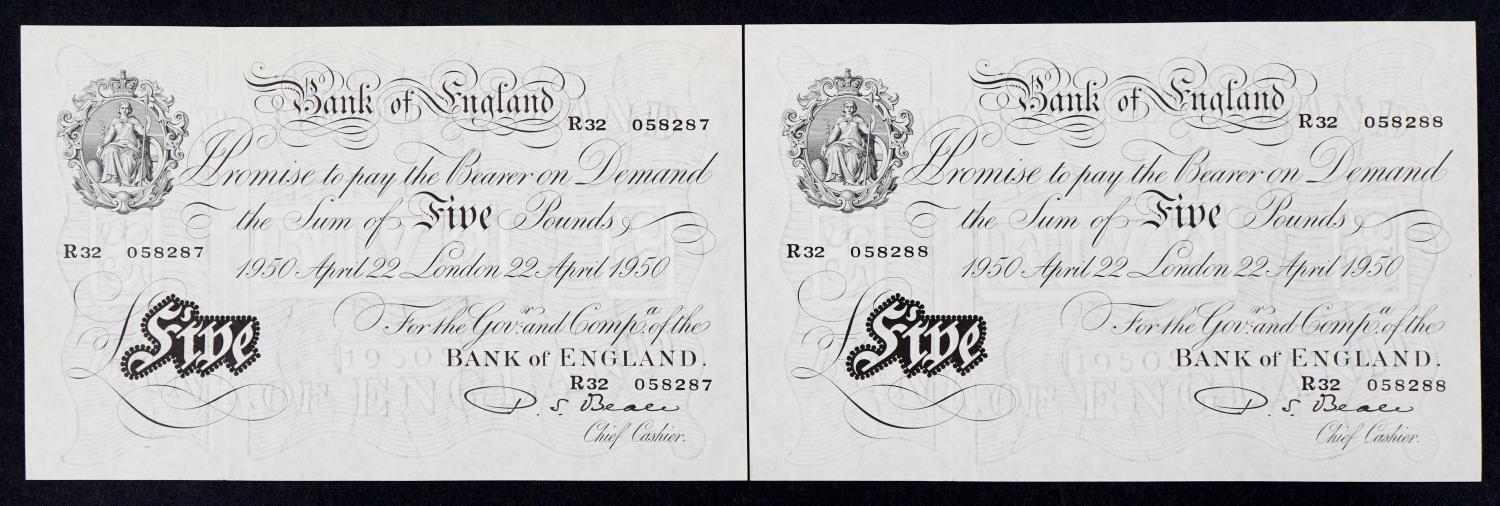 Bank of England
R32 058287
I Promise to pay the Bearer on Demand
the Sum of Five Pounds
R32 058287
1950 April 22 London 22 April 1950
£Five
For the Gov.r and Comp.a of the
BANK of ENGLAND.
R32 058287
P. S. Beale
Chief Cashier.
Bank of England
R32 058288
I Promise to pay the Bearer on Demand
the Sum of Five Pounds
R32 058288
1950 April 22 London 22 April 1950
£Five
For the Gov.r and Comp.a of the
BANK of ENGLAND.
R32 058288
P. S. Beale
Chief Cashier.